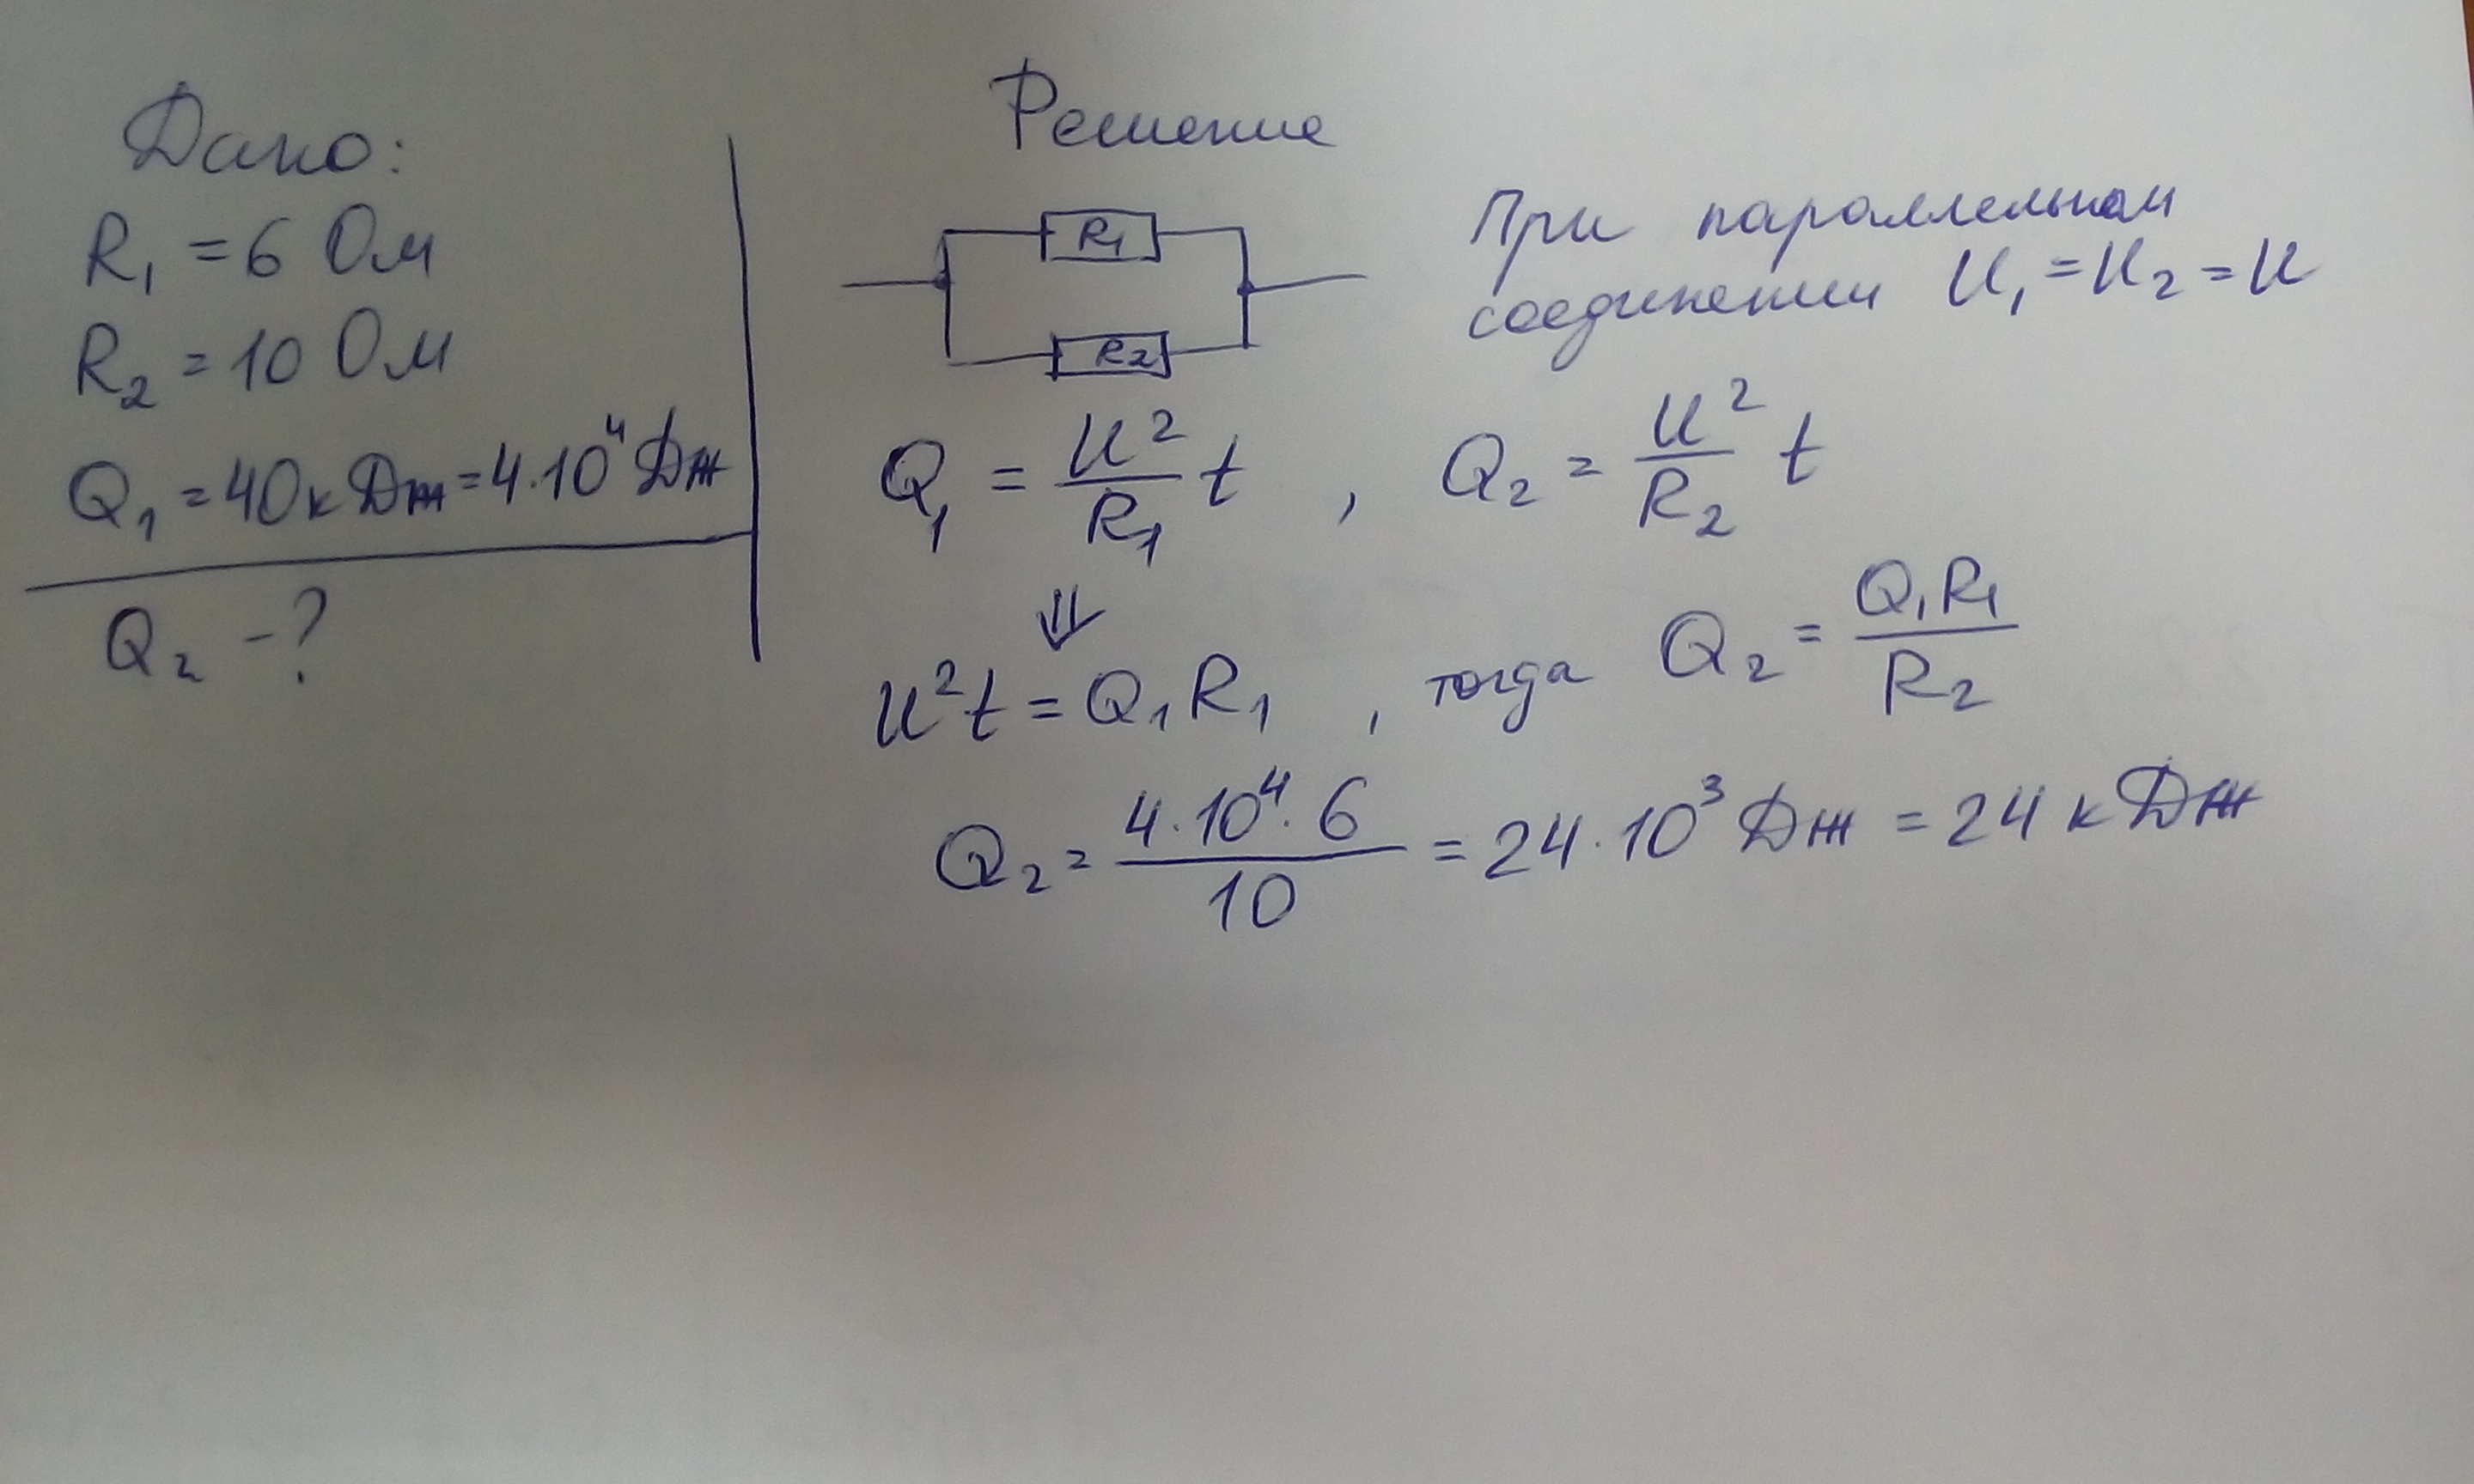 Дано:
R₁ = 6 Ом
R₂ = 10 Ом
Q₁ = 40 кДж = 4·10⁴ Дж
Q₂ - ?
Решение
R₁
R₂
При параллельном
соединении U₁ = U₂ = U
Q₁ = U²/R₁ t , Q₂ = U²/R₂ t
⇓
U²t = Q₁R₁ , тогда Q₂ = Q₁R₁/R₂
Q₂ = 4·10⁴·6/10 = 24·10³ Дж = 24 кДж